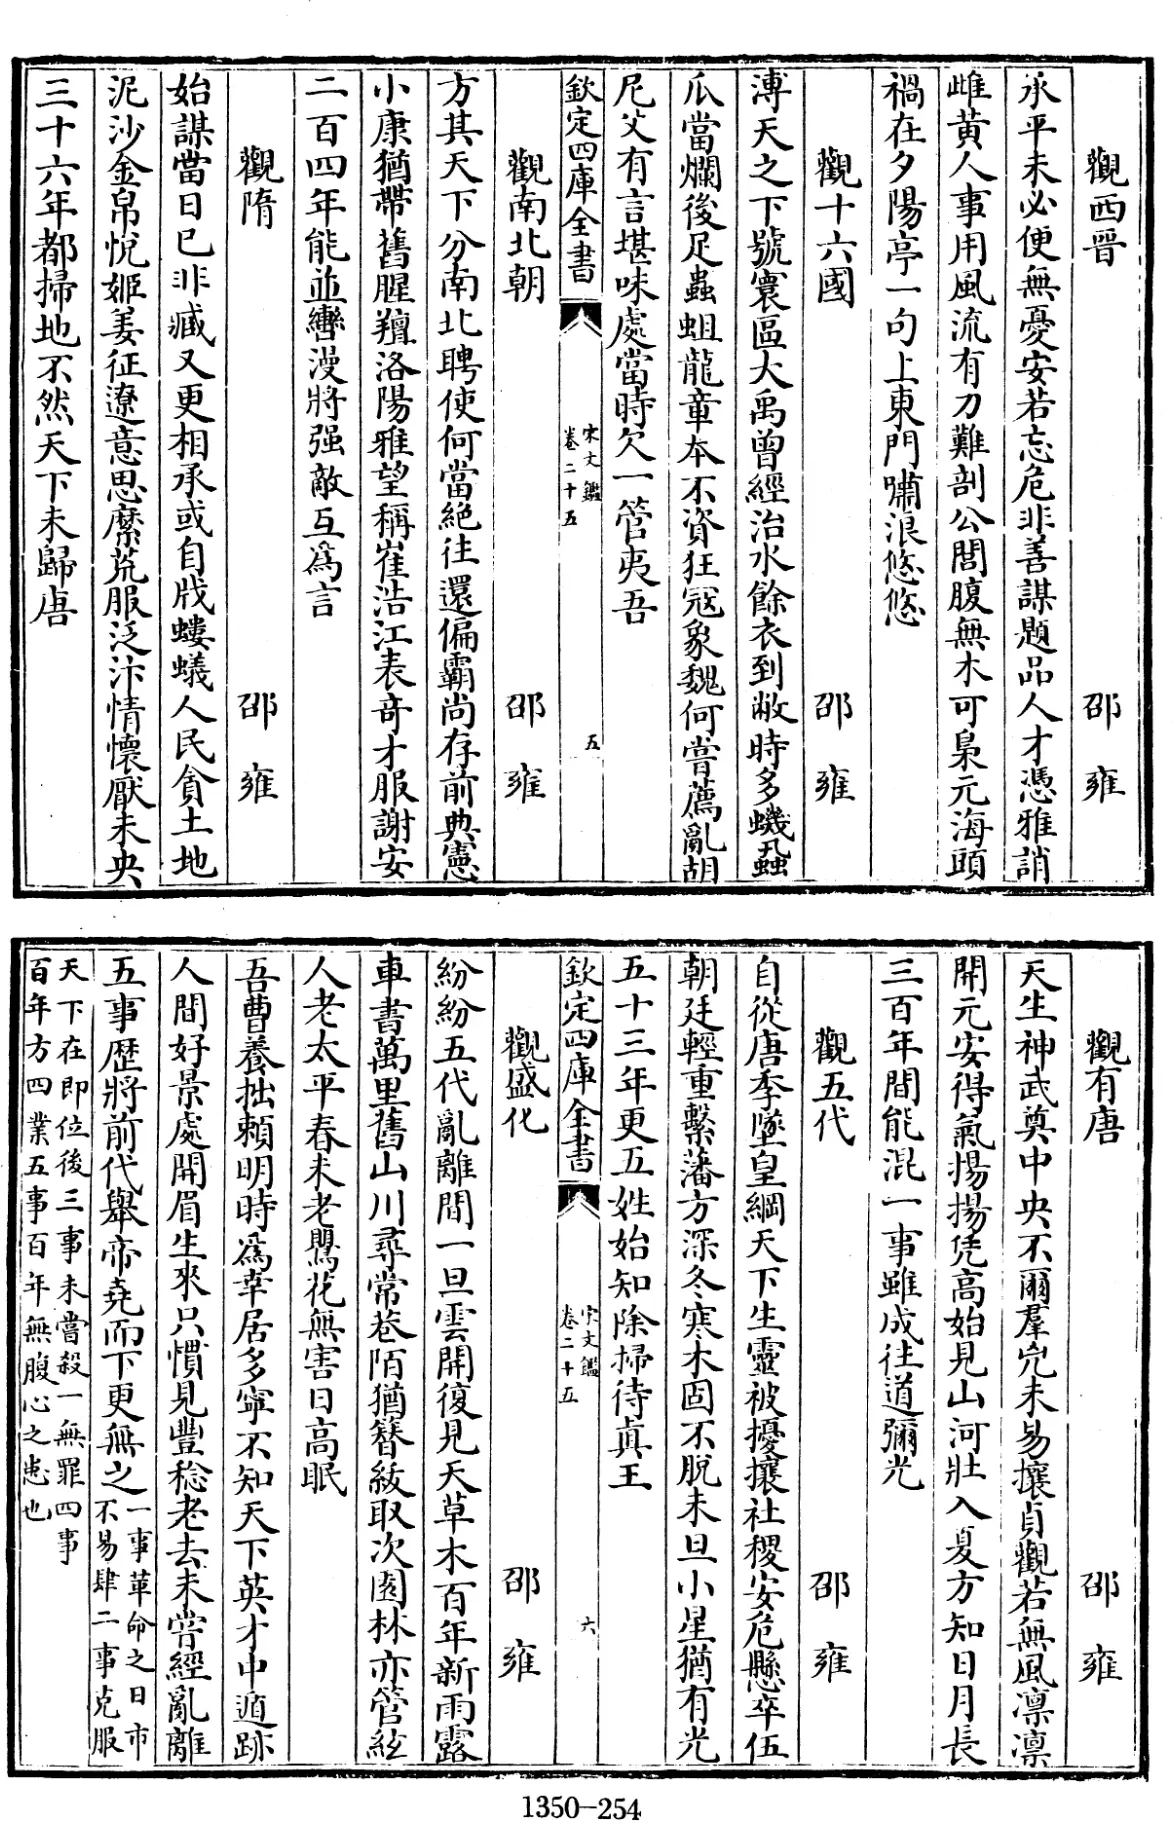 觀西晉 邵雍
承平未必便無憂安若忘危非善謀題品人才憑雅誚
雌黄人事用風流有刀難剖公閭腹無木可梟元海頭
禍在夕陽亭一句上東門嘯浪悠悠
觀十六國 邵雍
溥天之下號寰區大禹曾經治水餘衣到敝時多蟣蝨
瓜當爛後足蟲蛆龍章本不資狂冦象魏何嘗薦亂胡
尼父有言堪味處當時欠一管夷吾
欽定四庫全書 宋文鑑卷二十五 五
觀南北朝 邵雍
方其天下分南北聘使何當絶往還偏霸尚存前典憲
小康猶帶舊腥羶洛陽雅望稱崔浩江表竒才服謝安
二百四年能並轡漫將强敵互爲言
觀隋 邵雍
始謀當日已非臧又更相承或自戕螻蟻人民貪土地
泥沙金帛悅姬姜征遼意思縻荒服泛汴情懷厭未央
三十六年都掃地不然天下未歸唐
觀有唐 邵雍
天生神武奠中央不爾羣兇未易攘貞觀若無風凛凛
開元安得氣揚揚凭高始見山河壯入夏方知日月長
三百年間能混一事雖成往道彌光
觀五代 邵雍
自從唐季墜皇綱天下生靈被擾攘社稷安危懸卒伍
朝廷輕重繫藩方深冬寒木固不脱未旦小星猶有光
五十三年更五姓始知除掃待眞王
欽定四庫全書 宋文鑑卷二十五 六
觀盛化 邵雍
紛紛五代亂離間一旦雲開復見天草木百年新雨露
車書萬里舊山川尋常巷陌猶簪紱取次園林亦管絃
人老太平春未老鸎花無害日高眠
吾曹養拙賴明時爲幸居多寧不知天下英才中遁跡
人間好景處開眉生來只慣見豐稔老去未嘗經亂離
五事歴將前代舉帝堯而下更無之一事革命之日市不易肆二事克服
天下在即位後三事未嘗殺一無罪四事百年方四業五事百年無腹心之患也
1350-254